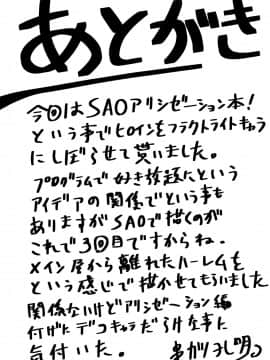 あとがき
今回はSAOアリシゼーション本！
という事でヒロインをフラクトライトキャラ
にしぼらせて貰いました。
プログラムで好き放題にという
アイデアの関係でという事も
ありますがSAOで描くのが
これで3回目ですからね。
メイン層から離れたハーレムを
という感じで描かせてもらいました
関係ないけどアリシゼーション編
付けたデコキャラだらけな事に
気付いた。